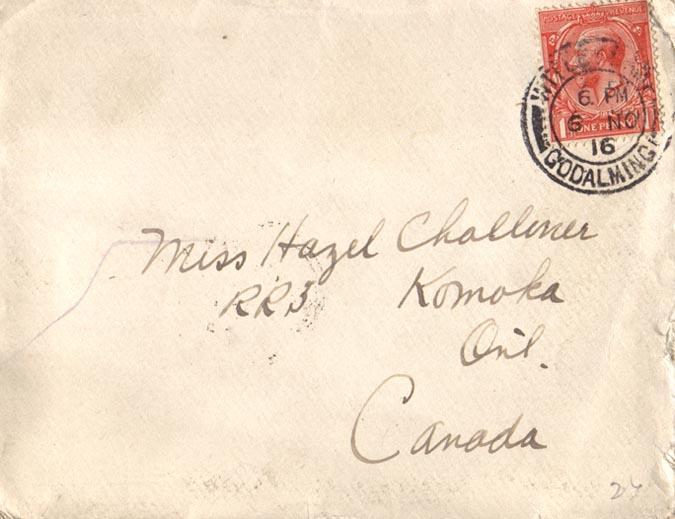 POSTAGE REVENUE
ONE PENNY
WITLEY CAMP
6. PM
6 NO
16
GODALMING
Miss Hazel Challener
RR3 Komoka
Ont.
Canada
27